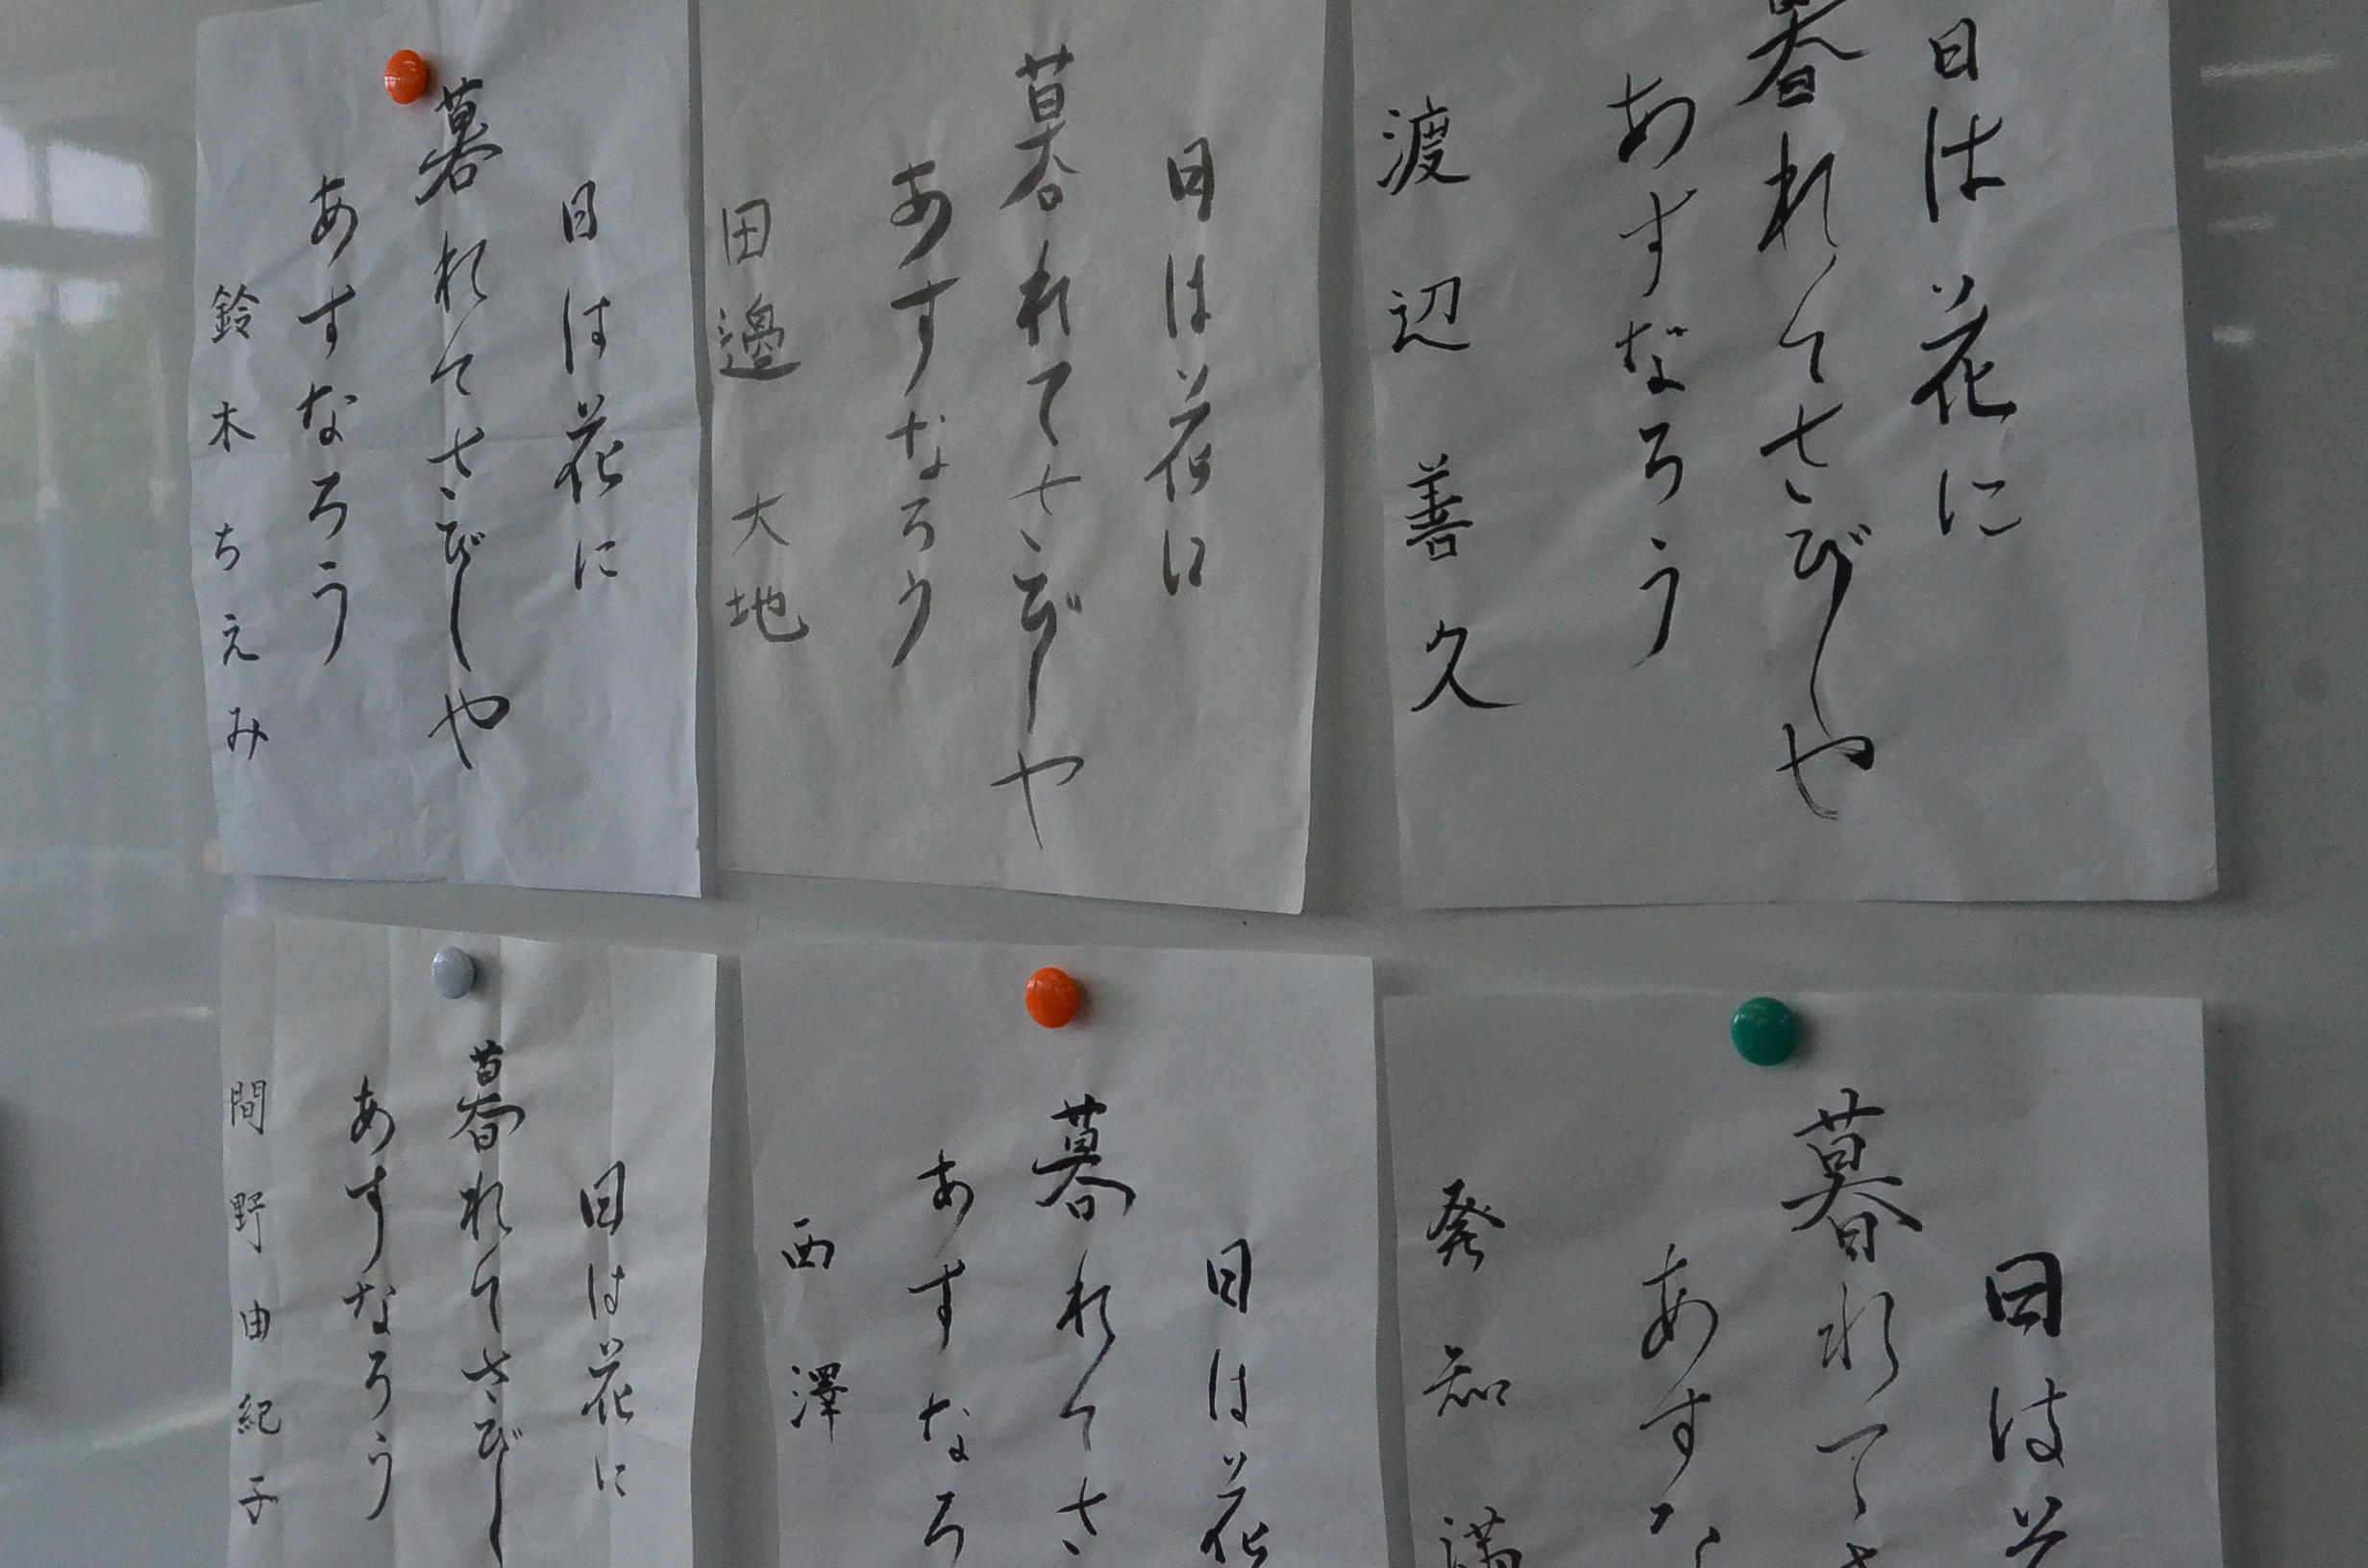 日は花に
暮れてさびしや
あすなろう
渡辺善久
日は花に
暮れてさびしや
あすなろう
田邊 大地
日は花に
暮れてさびしや
あすなろう
鈴木ちえみ
日は
暮れてさ
あすな
発知 満
日は花
暮れてさ
あすなろ
西澤
日は花に
暮れてさびし
あすなろう
間野由紀子